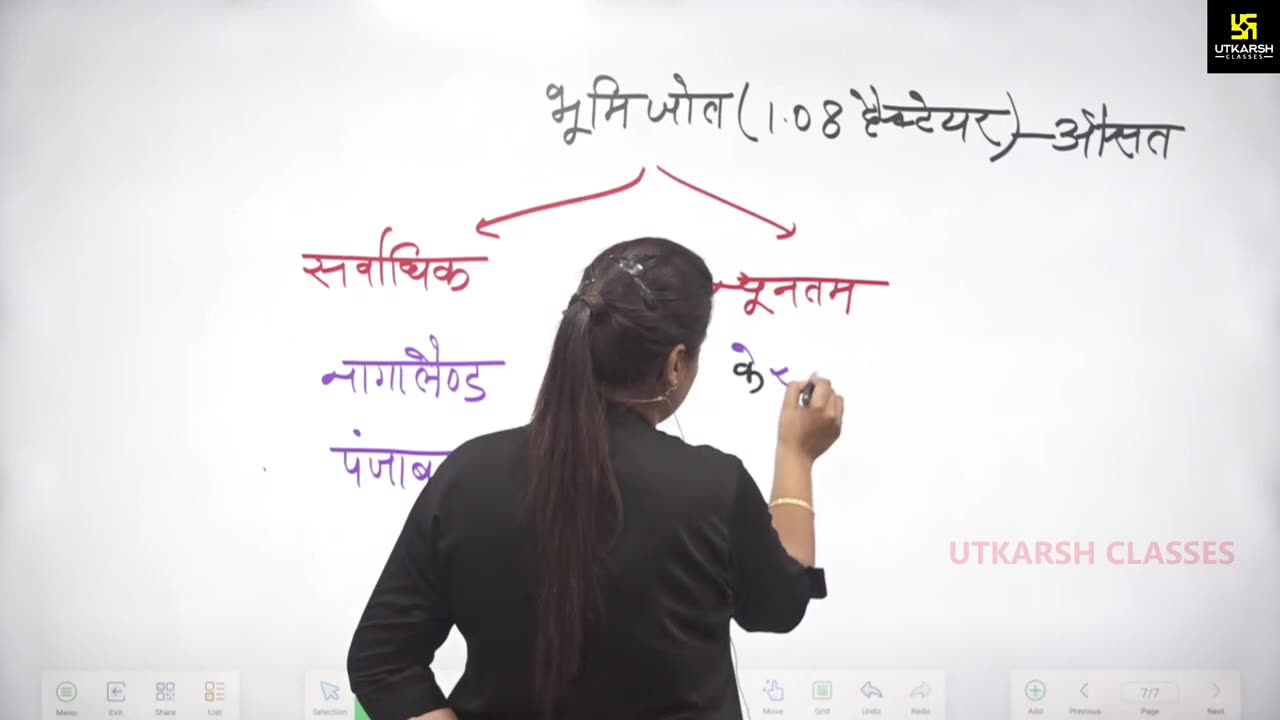 UTKARSH
CLASSES
भूमि जोत (1.08 हैक्टेयर) – औसत
सर्वाधिक
न्यूनतम
नागालैण्ड
के
पंजाब
UTKARSH CLASSES
Menu Exit Share List Selection Move Grid Undo Redo Add Previous 7/7 Page Next